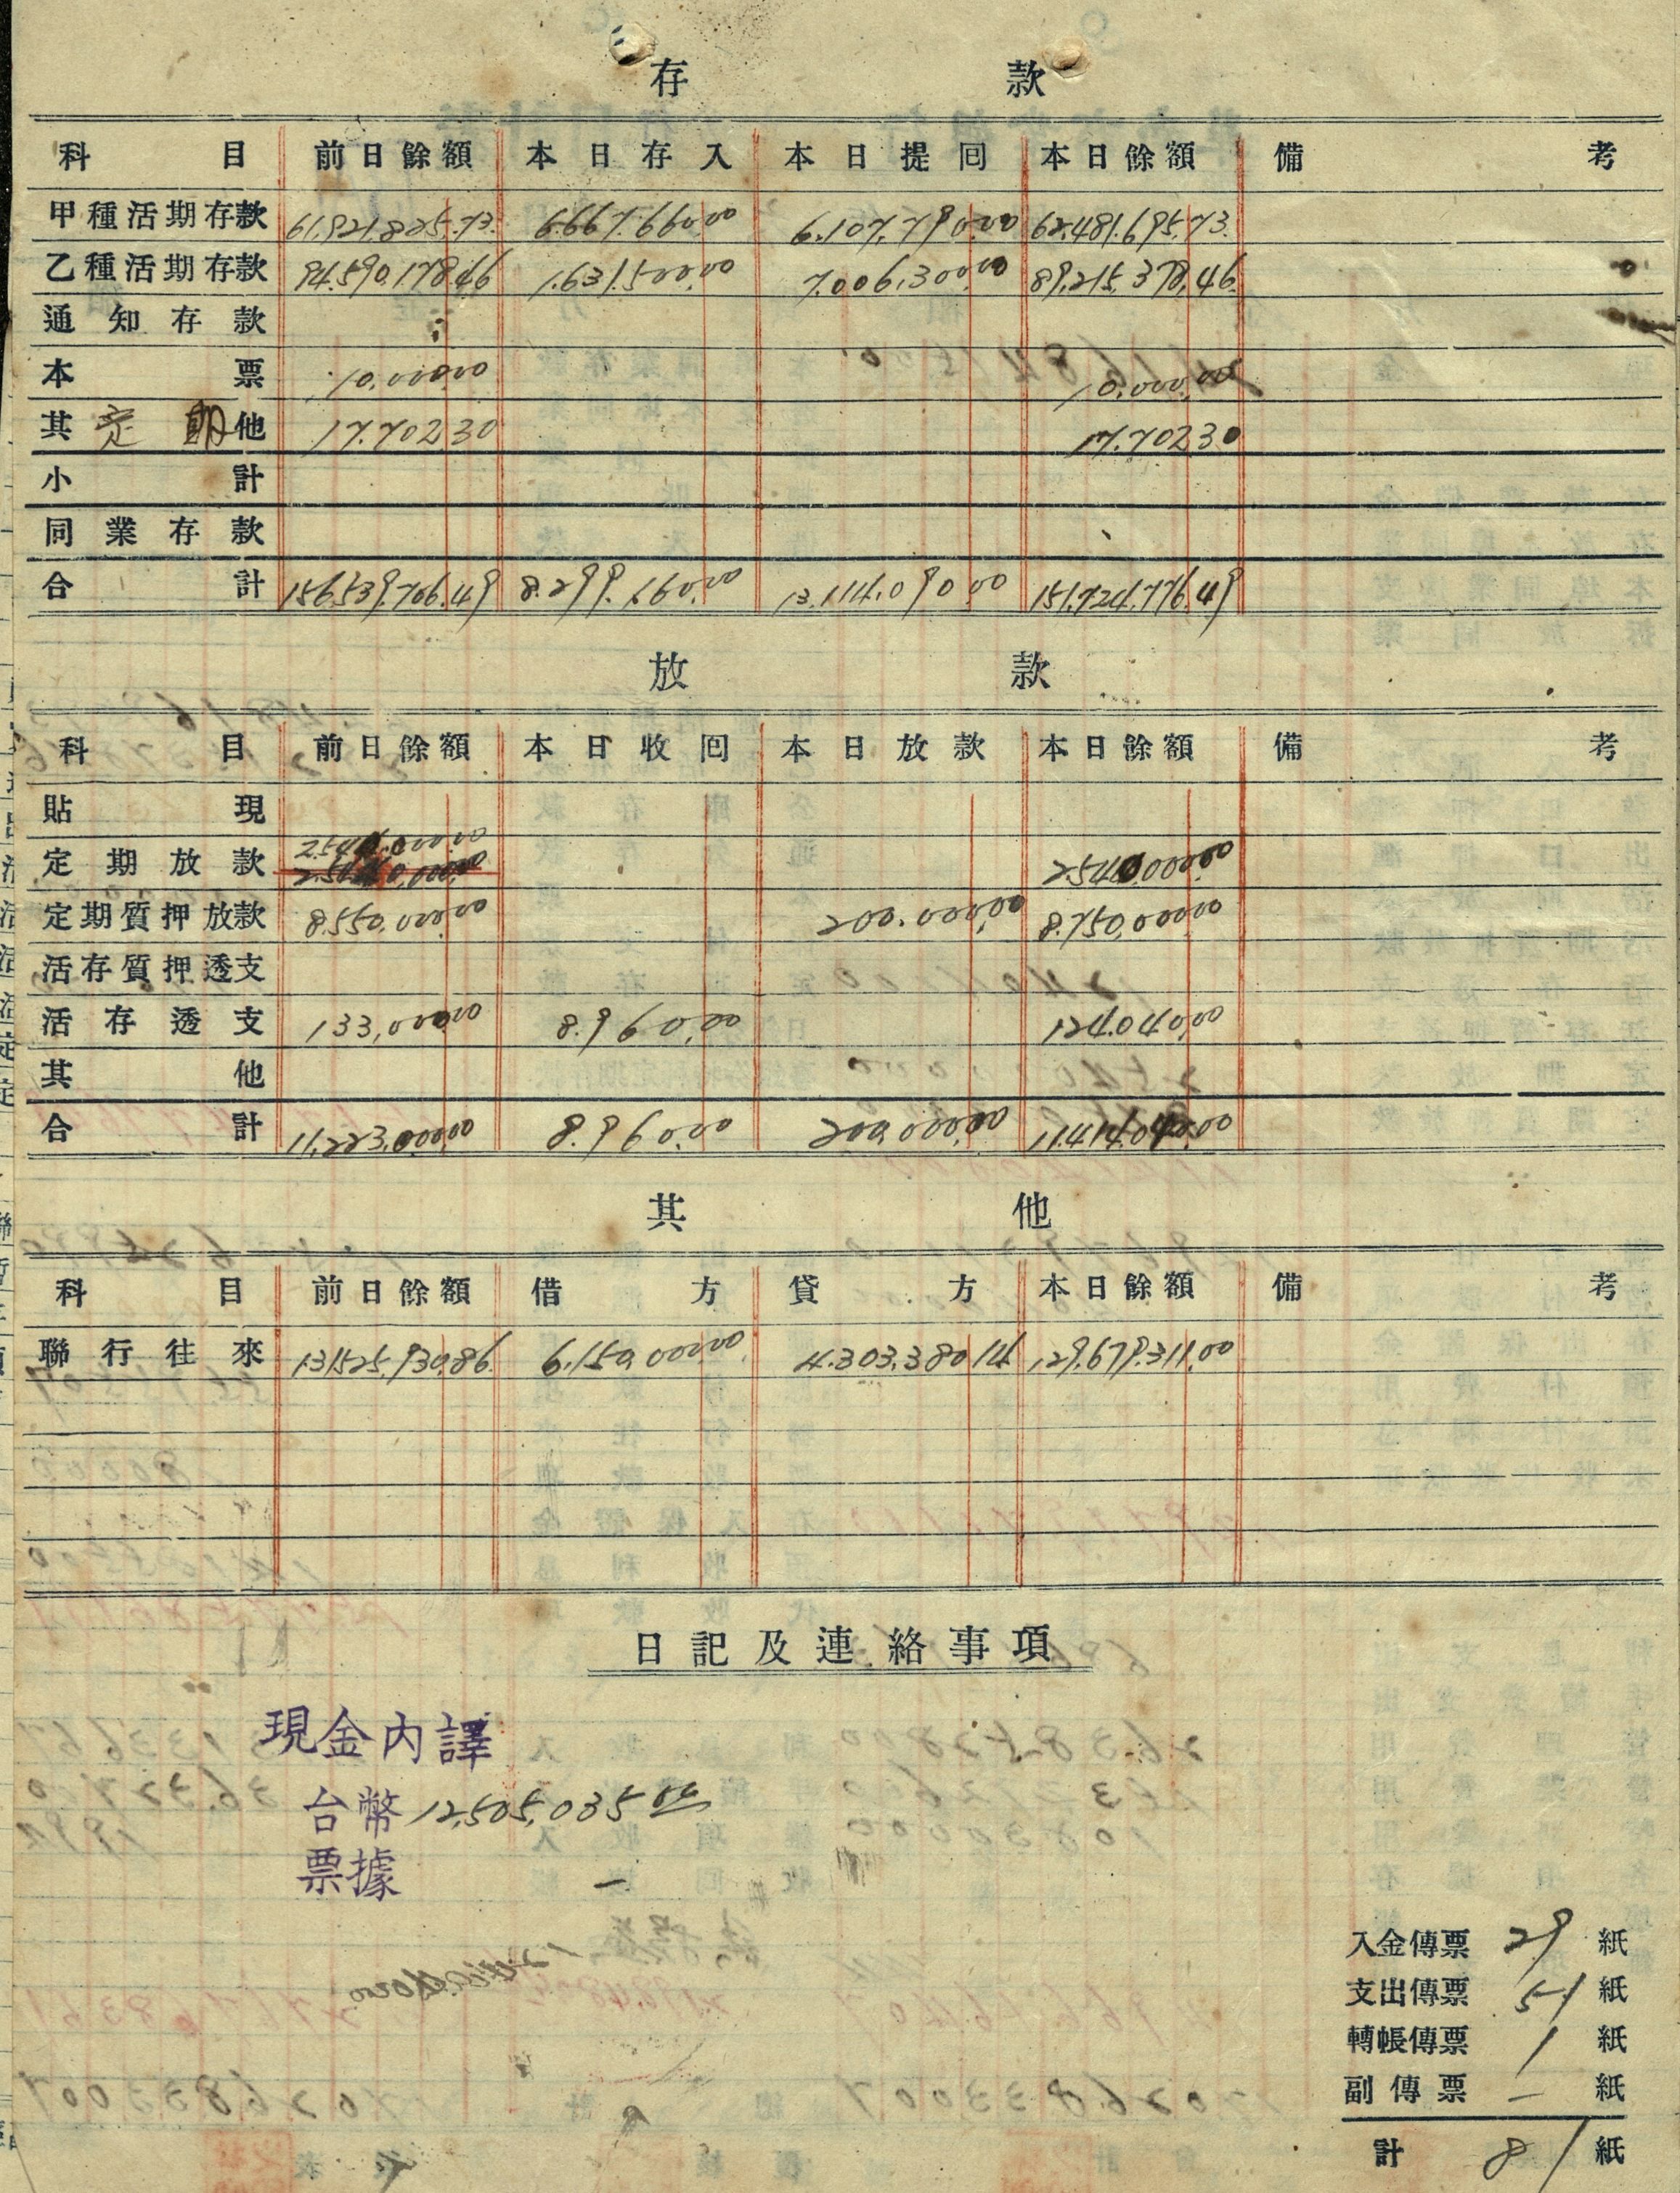 存款
科目 前日餘額 本日存入 本日提囘 本日餘額 備考
甲種活期存款 61,921,825.73 6,667,660.00 6,107,790.00 62,481,695.73
乙種活期存款 94,590,178.46 1,631,500.00 7,006,300.00 89,215,378.46
通知存款
本票 10,000.00 10,000.00
其定期他 17,702.30 17,702.30
小計
同業存款
合計 156,539,706.49 8,299,160.00 13,114,090.00 151,724,776.49
放款
科目 前日餘額 本日收囘 本日放款 本日餘額 備考
貼現
定期放款 2,540,000.00 2,540,000.00
定期質押放款 8,550,000.00 200,000.00 8,750,000.00
活存質押透支
活存透支 133,000.00 8,960.00 124,040.00
其他
合計 11,223,000.00 8,960.00 200,000.00 11,414,040.00
其他
科目 前日餘額 借方 貸方 本日餘額 備考
聯行往來 131,525,930.86 6,150,000.00 4,303,380.14 129,679,311.00
日記及連絡事項
現金內譯
台幣 12,505,035
票據 —
入金傳票 29 紙
支出傳票 51 紙
轉帳傳票 1 紙
副傳票 — 紙
計 81 紙